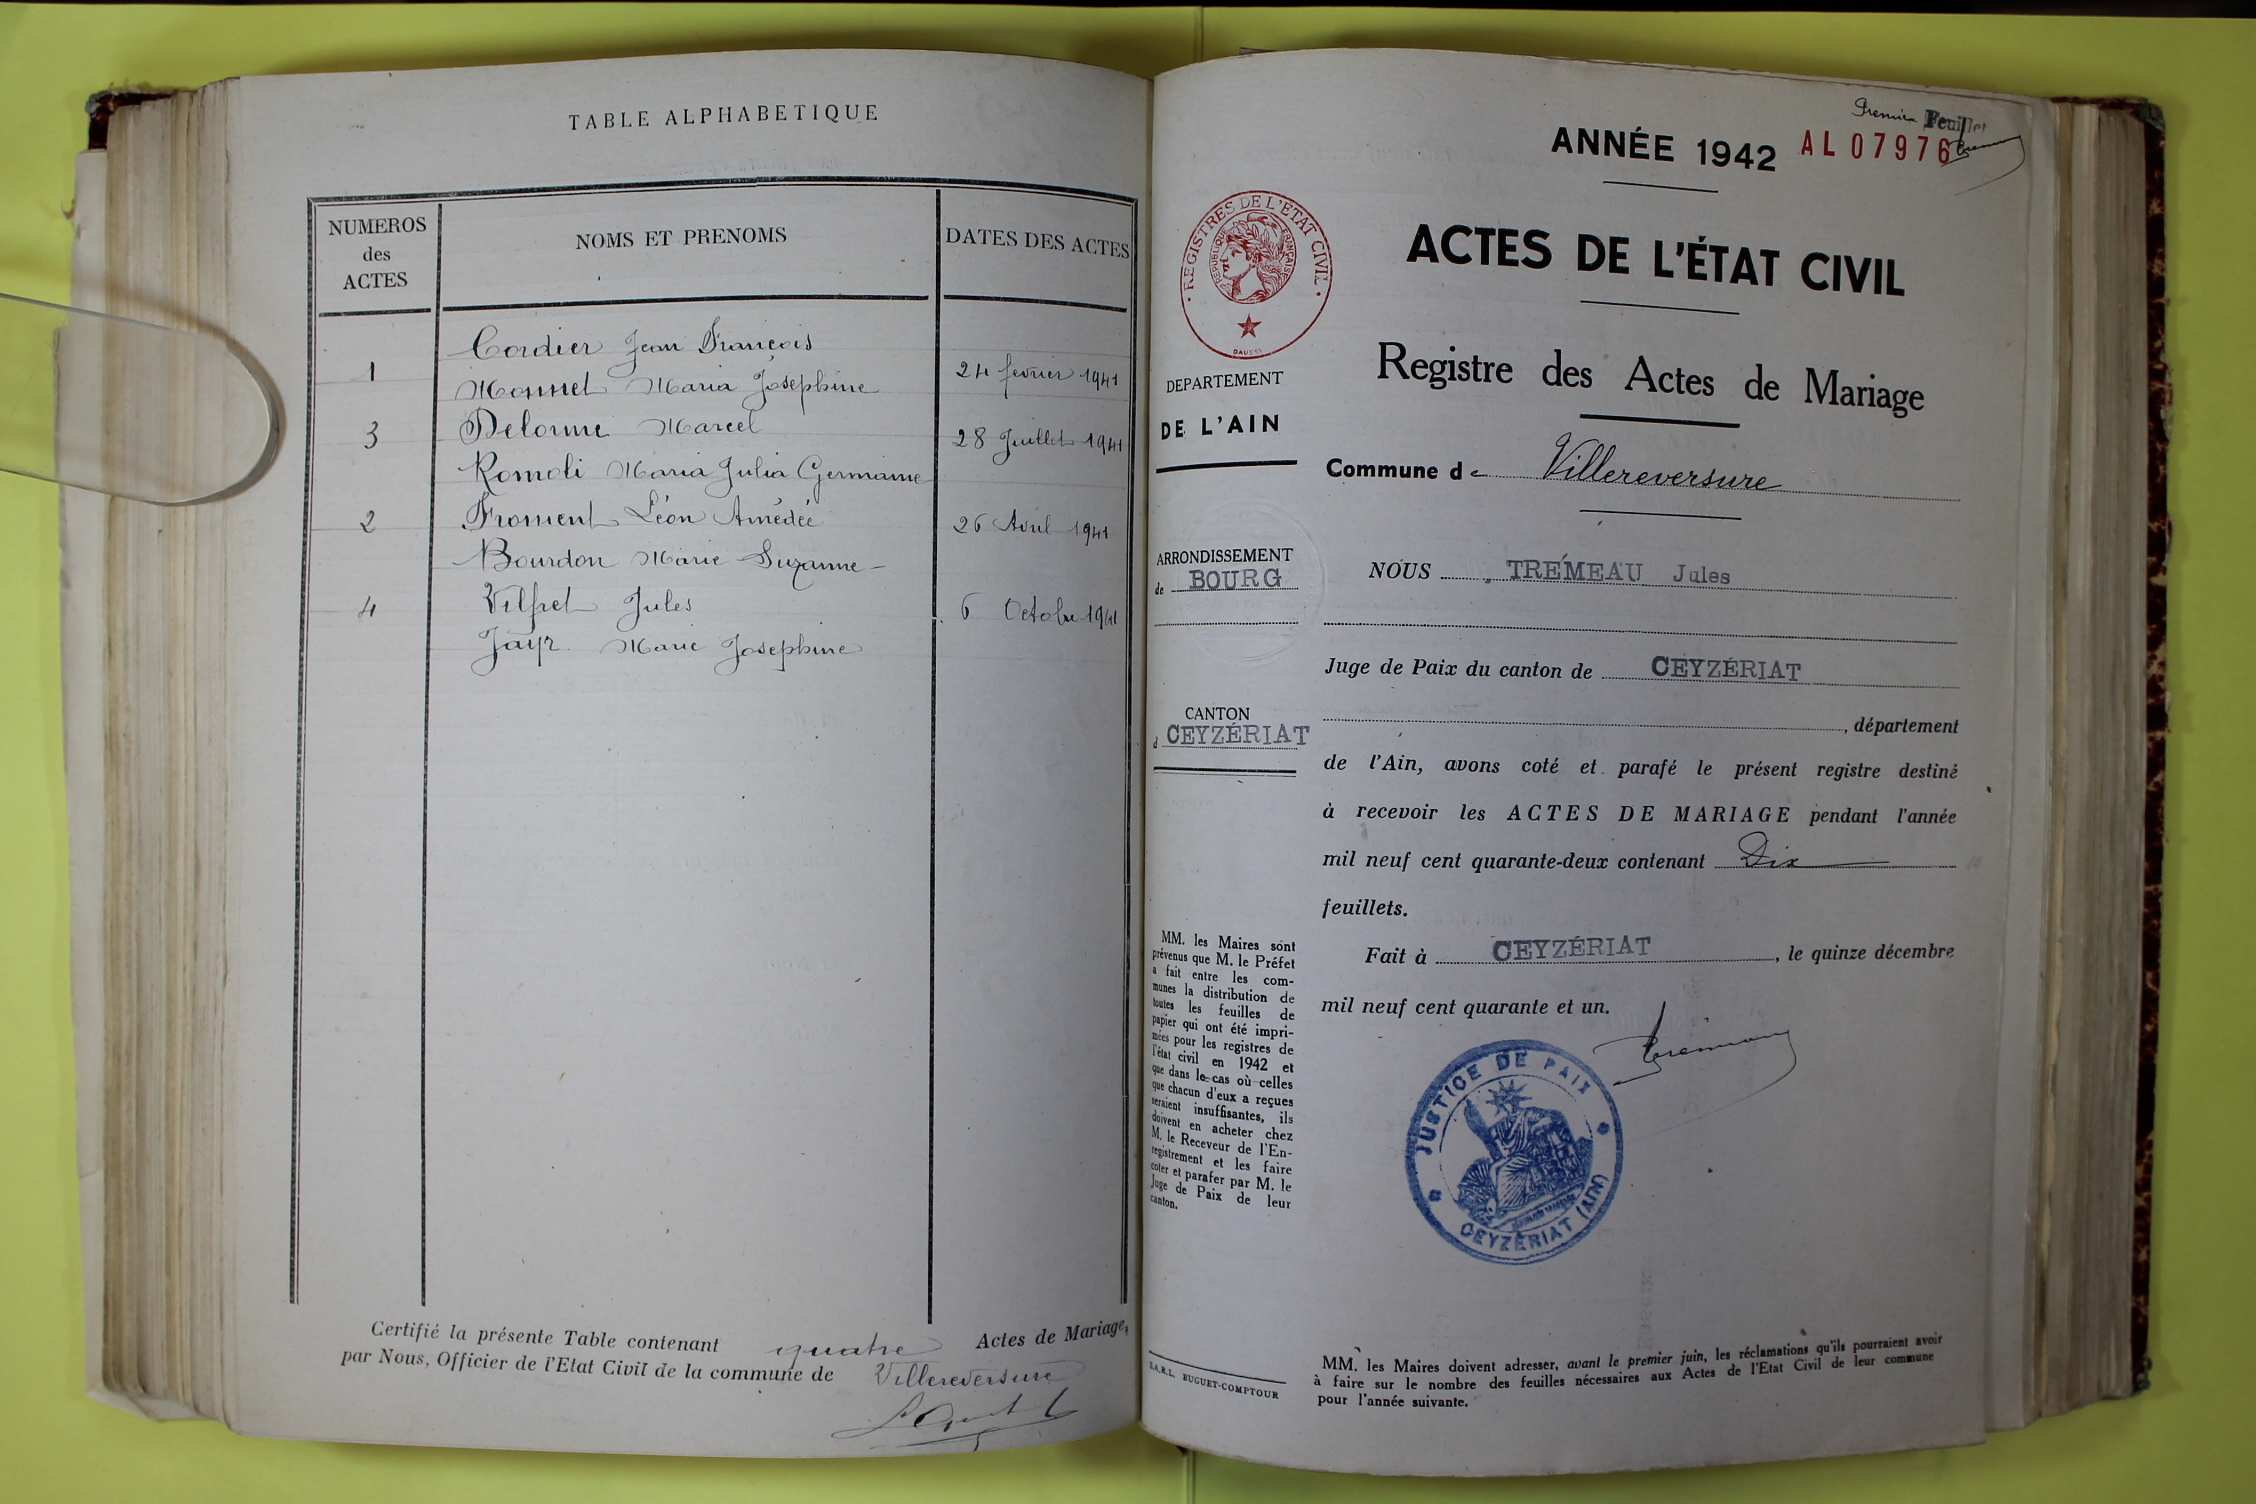 TABLE ALPHABETIQUE
NUMEROS
des
ACTES
NOMS ET PRENOMS
DATES DES ACTES
Cordier Jean François
1
24 février 1941
Monnet Maria Josephine
Delorme Marcel
3
28 Juillet 1941
Romoli Maria Julia Germaine
Froment Léon Amédée
2
26 Avril 1941
Bourdon Marie Suzanne
Vilfret Jules
4
6 Octobre 1941
Jayr Marie Josephine
Certifié la présente Table contenant quatre Actes de Mariage,
par Nous, Officier de l'Etat Civil de la commune de Villereversure
Premier Feuillet
ANNÉE 1942 AL 07976
REGISTRES DE L'ETAT CIVIL
REPUBLIQUE FRANÇAISE
ACTES DE L'ÉTAT CIVIL
Registre des Actes de Mariage
DEPARTEMENT
DE L'AIN
Commune de Villereversure
ARRONDISSEMENT
de BOURG
CANTON
d CEYZÉRIAT
NOUS TRÉMEAU Jules
Juge de Paix du canton de CEYZÉRIAT
, département
de l'Ain, avons coté et parafé le présent registre destiné
à recevoir les ACTES DE MARIAGE pendant l'année
mil neuf cent quarante-deux contenant Dix
feuillets.
Fait à CEYZÉRIAT, le quinze décembre
mil neuf cent quarante et un.
JUSTICE DE PAIX
CEYZÉRIAT (AIN)
MM. les Maires sont
prévenus que M. le Préfet
a fait entre les com-
munes la distribution de
toutes les feuilles de
papier qui ont été impri-
mées pour les registres de
l'état civil en 1942 et
que dans le cas où celles
que chacun d'eux a reçues
seraient insuffisantes, ils
doivent en acheter chez
M. le Receveur de l'En-
registrement et les faire
coter et parafer par M. le
Juge de Paix de leur
canton.
S.A.R.L. BUGUET-COMPTOUR
MM. les Maires doivent adresser, avant le premier juin, les réclamations qu'ils pourraient avoir
à faire sur le nombre des feuilles nécessaires aux Actes de l'Etat Civil de leur commune
pour l'année suivante.